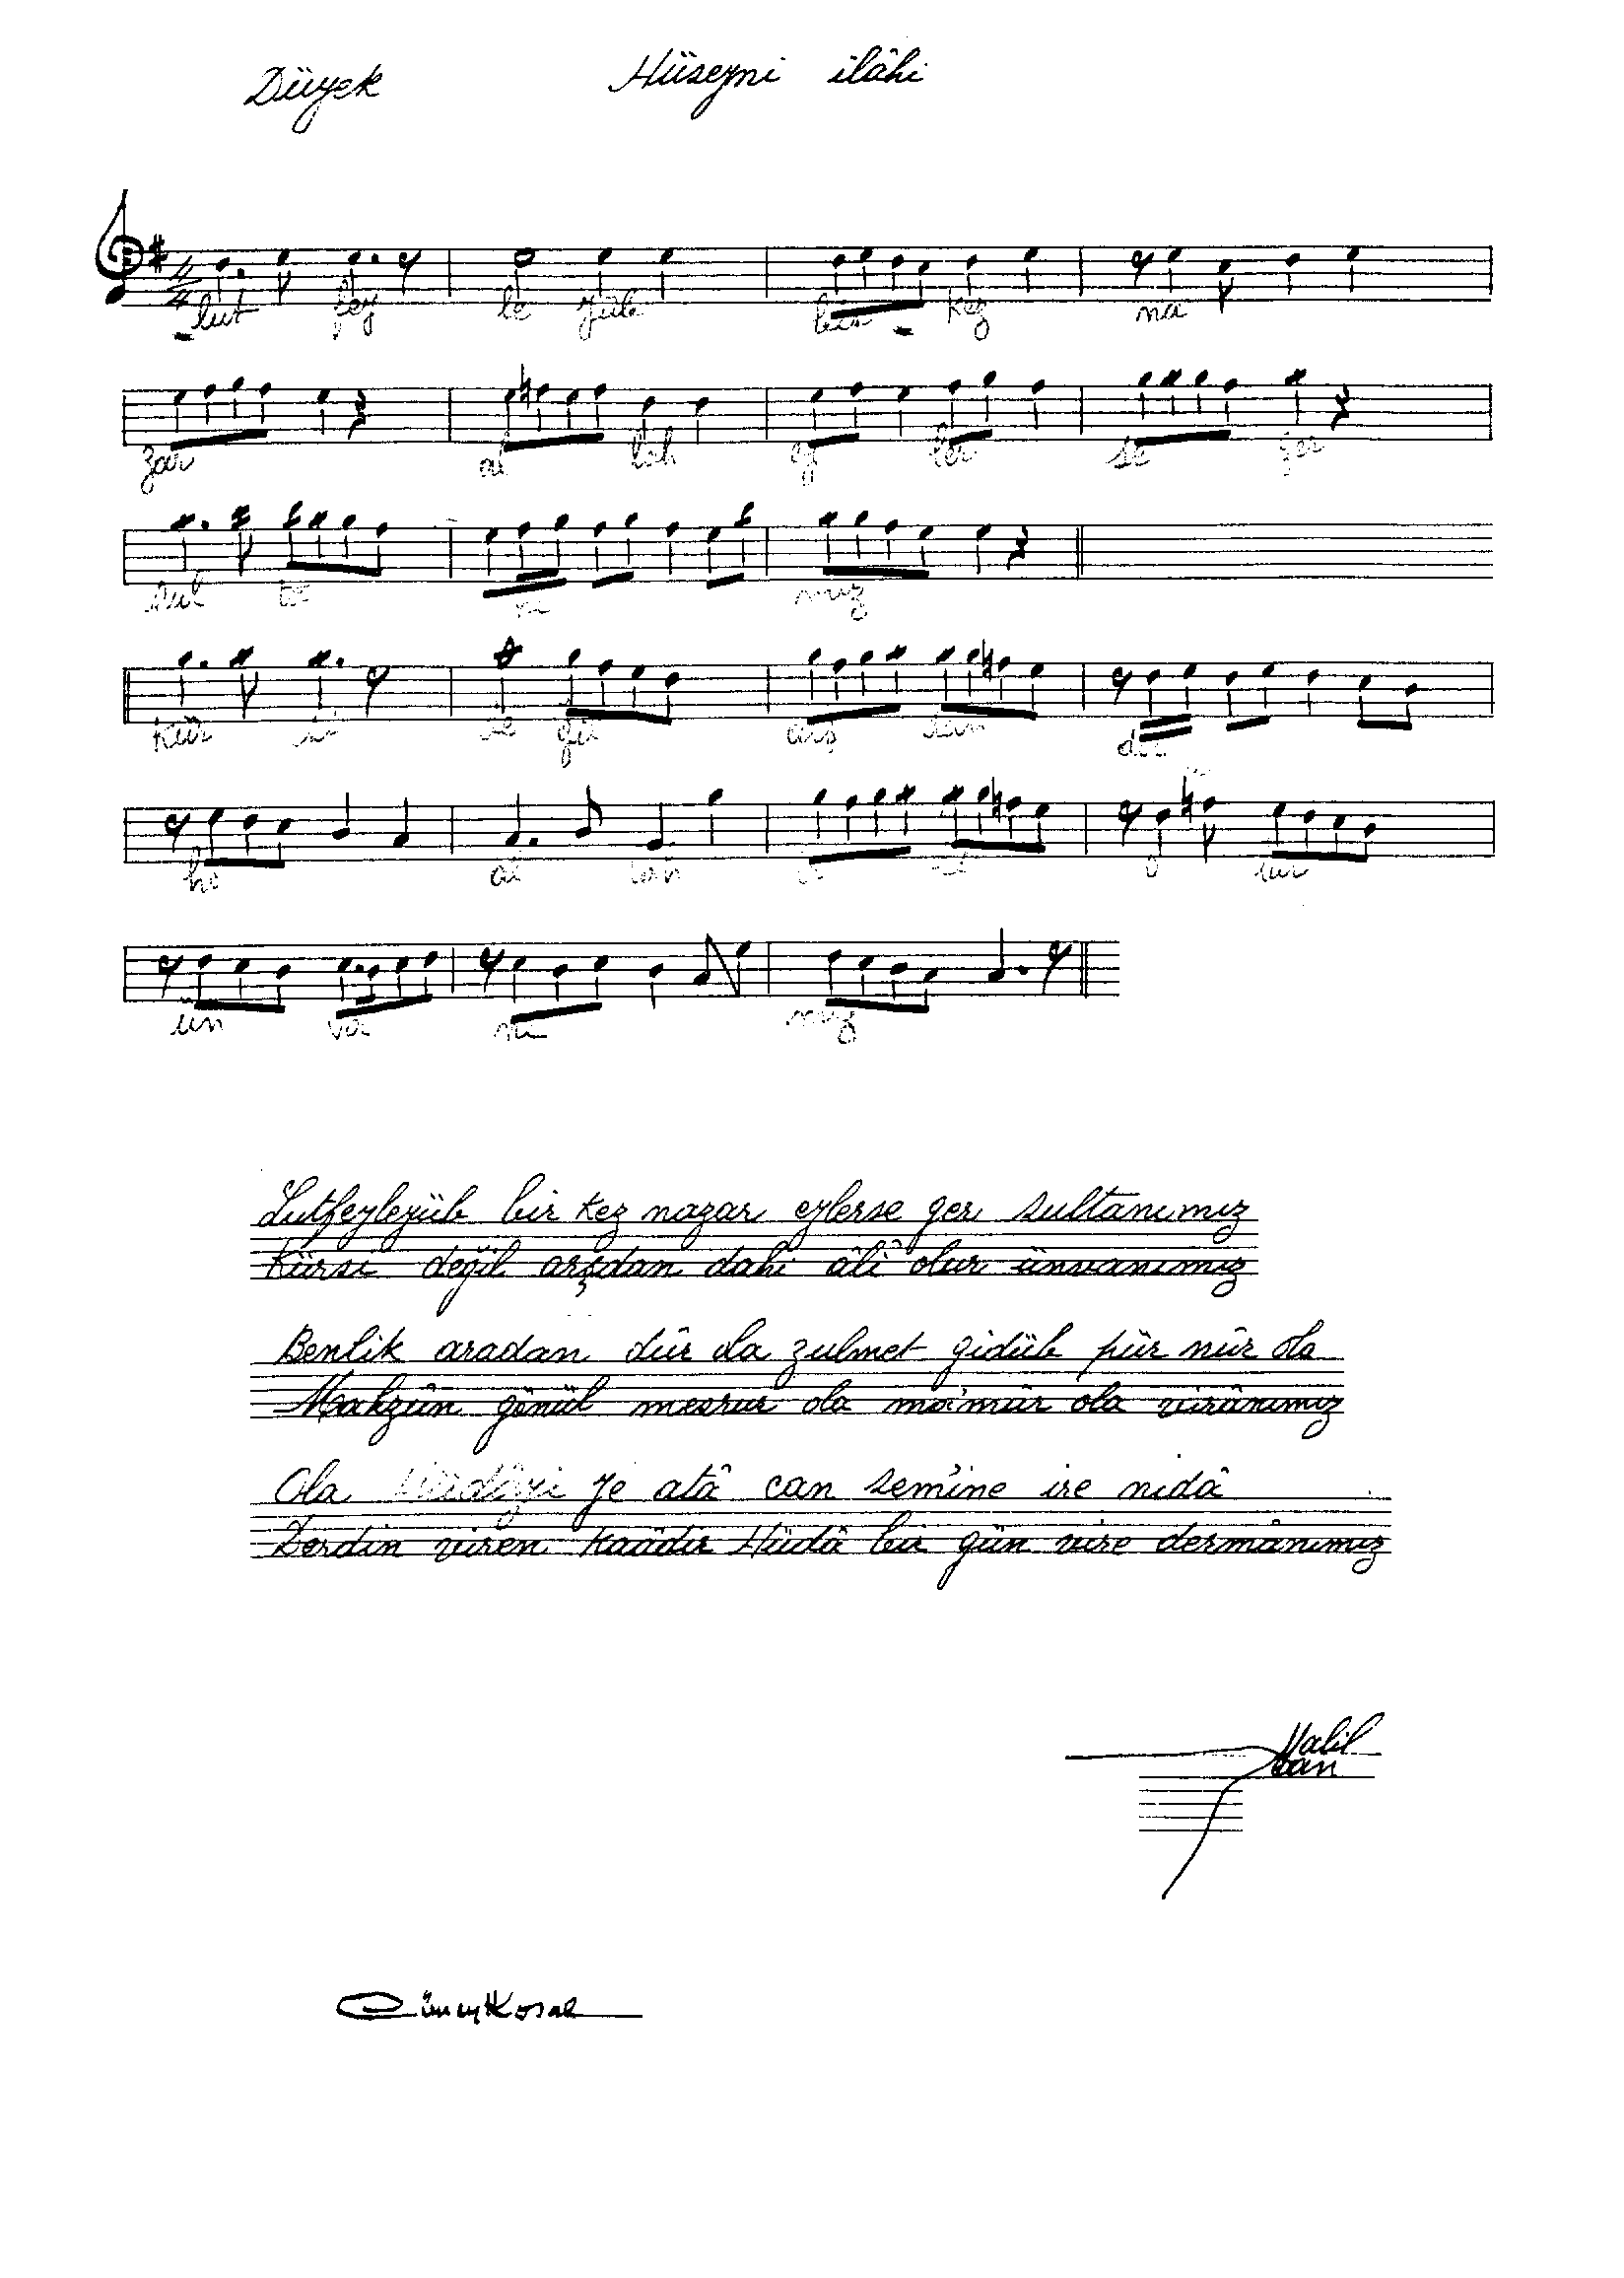 Düyek Hüseyni ilâhi
4/4
lut fey le yüb bir kez na
zar al lah ey ler se ger
sul ta nı mız
kür si de ğil arş dan da
hi âl o lur
ün va nı mız
Lutfeyleyüb bir kez nazar eylerse ger sultanımız
Kürsi değil arşdan dahi âlî olur ünvanımız
Benlik aradan dûr ola zulmet gidüb pür nûr ola
Mahzûn gönül mesrur ola ma'mûr ola virânımız
Ola Hüdâyi ye atâ can sem'ine ire nidâ
Derdin viren kaadir Hüdâ bir gün vire dermânımız
Halil
Can
Cüneyt Kosal